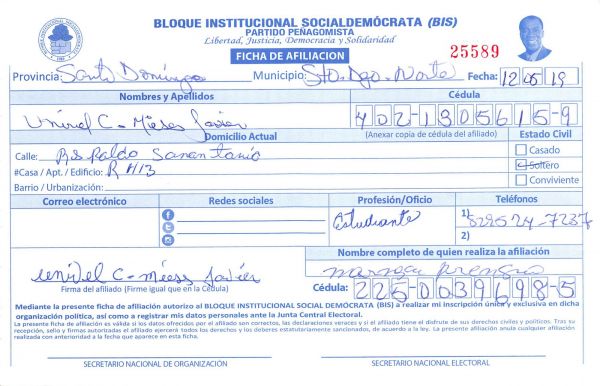 BLOQUE INSTITUCIONAL SOCIALDEMÓCRATA (BIS)
PARTIDO PEÑAGOMISTA
Libertad, Justicia, Democracia y Solidaridad
FICHA DE AFILIACION
25589
Provincia: Santo Domingo Municipio: Sto. Dgo. Norte Fecha: 12 05 19
Nombres y Apellidos Cédula
Unirel C. Mieses Javier 402-1305615-9
Domicilio Actual (Anexar copia de cédula del afiliado) Estado Civil
Calle: San Antonio Casado
#Casa / Apt. / Edificio: R H13 Soltero
Barrio / Urbanización: Conviviente
Correo electrónico Redes sociales Profesión/Oficio Teléfonos
Estudiante 1) 829524-7237
2)
Nombre completo de quien realiza la afiliación
C. Mieses Javier
Firma del afiliado (Firme igual que en la Cédula) Cédula: 225-0039698-5
Mediante la presente ficha de afiliación autorizo al BLOQUE INSTITUCIONAL SOCIAL DEMÓCRATA (BIS) a realizar mi inscripción única y exclusiva en dicha
organización política, así como a registrar mis datos personales ante la Junta Central Electoral.
La presente ficha de afiliación es válida si los datos ofrecidos por el afiliado son correctos, las declaraciones veraces y si el afiliado tiene el disfrute de sus derechos civiles y políticos. Tras su
recepción, sello y firmas autorizadas el afiliado ejercerá todos los derechos y los deberes estatutariamente sancionados, de acuerdo a la ley. La presente afiliación anula cualquier afiliación
realizada con anterioridad a la fecha que aparece en esta ficha.
SECRETARIO NACIONAL DE ORGANIZACIÓN SECRETARIO NACIONAL ELECTORAL